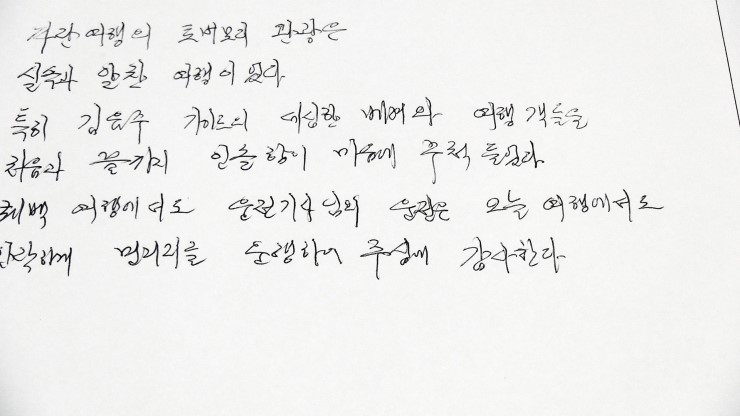 자란여행의 토버모리 관광은
실속과 알찬 여행이었다
특히 김음주 가이드의 세심한 배려와 여행객들을
처음과 끝까지 인솔함이 마음에 무척 들었다
여행에서도 운전기사님의 운전은 오늘 여행에서도
먼거리를 운행하여 주심에 감사한다